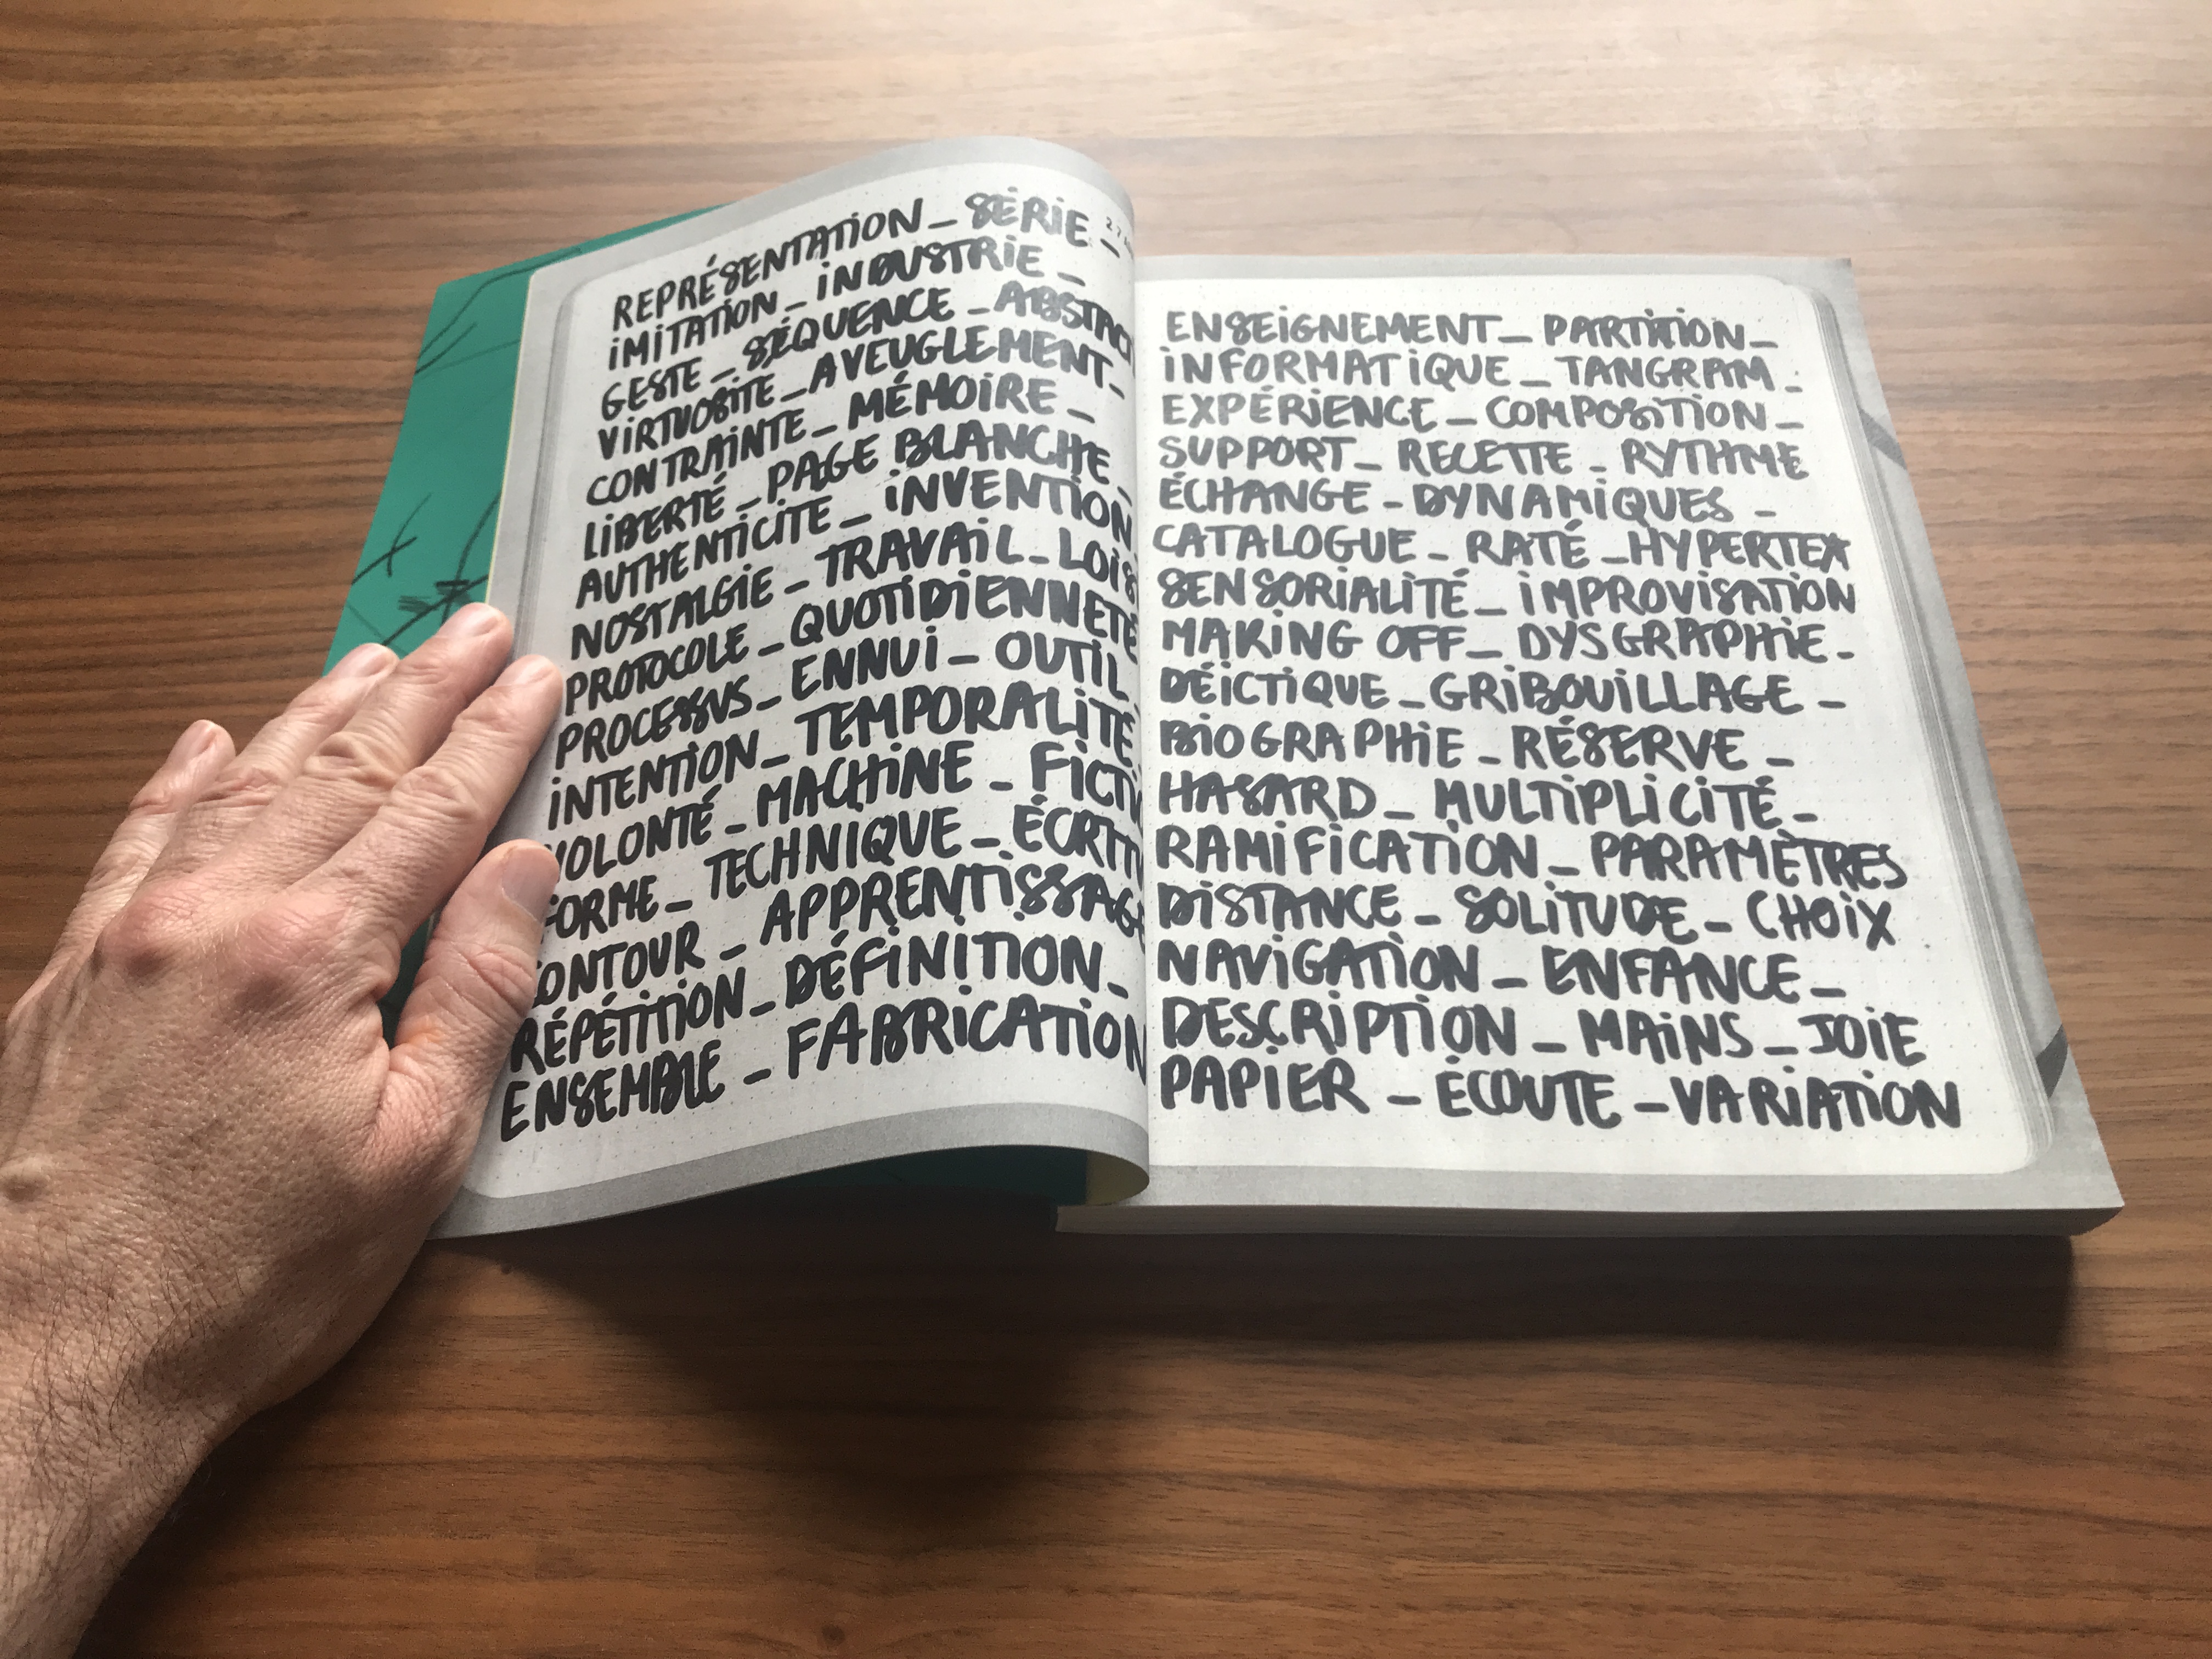 REPRÉSENTATION_SÉRIE_
iMiTATiON_iNDUSTRiE_
GESTE_SÉQUENCE_ABSTRAC
ViRTUOSiTÉ_AVEUGLEMENT_
CONTRAiNTE_MÉMOiRE_
LiBERTÉ_PAGE BLANCHE_
AUTHENTiCiTÉ_iNVENTiON
NOSTALGiE_TRAVAiL_LOiS
PROTOCOLE_QUOTiDiENNETÉ
PROCESSUS_ENNUi_OUTiL
iNTENTiON_TEMPORALiTÉ
VOLONTÉ_MACHiNE_FiCTi
FORME_TECHNiQUE_ÉCRiTU
CONTOUR_APPRENTiSSAGE
RÉPÉTiTiON_DÉFiNiTiON_
ENSEMBLE_FABRiCATiON
ENSEiGNEMENT_PARTiTiON_
iNFORMATiQUE_TANGRAM_
EXPÉRiENCE_COMPOSiTiON_
SUPPORT_RECETTE_RYTHME
ÉCHANGE_DYNAMiQUES_
CATALOGUE_RATÉ_HYPERTEX
SENSORiALiTÉ_iMPROViSATiON
MAKiNG OFF_DYSGRAPHiE_
DÉiCTiQUE_GRiBOUiLLAGE_
BiOGRAPHiE_RÉSERVE_
HASARD_MULTiPLiCiTÉ_
RAMiFiCATiON_PARAMÈTRES
DiSTANCE_SOLiTUDE_CHOiX
NAViGATiON_ENFANCE_
DESCRiPTiON_MAiNS_JOiE
PAPiER_ÉCOUTE_VARiATiON